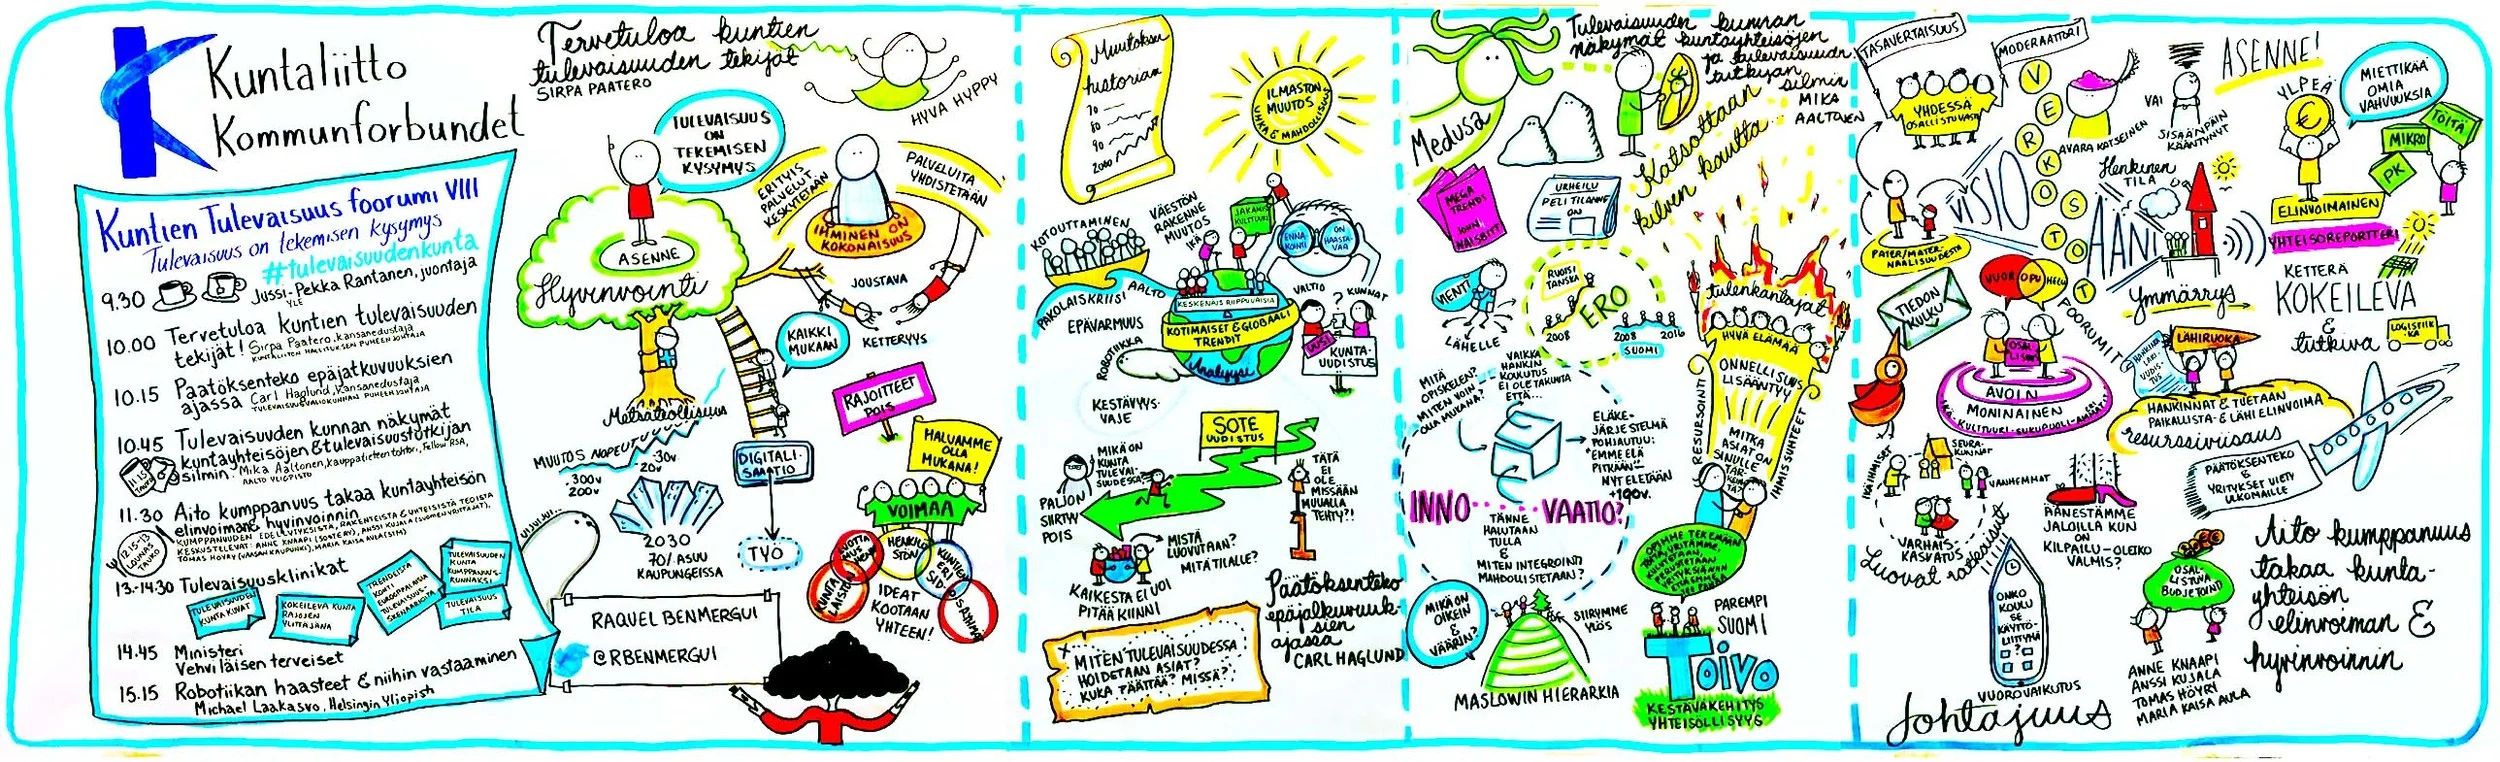 Kuntaliitto
Kommunforbundet
Kuntien Tulevaisuus foorumi VIII
Tulevaisuus on tekemisen kysymys
#tulevaisuudenkunta
9.30 Jussi-Pekka Rantanen, juontaja
YLE
10.00 Tervetuloa kuntien tulevaisuuden
tekijät! Sirpa Paatero, kansanedustaja
KUNTALIITON HALLITUKSEN PUHEENJOHTAJA
10.15 Päätöksenteko epäjatkuvuuksien
ajassa Carl Haglund, kansanedustaja
TULEVAISUUSVALIOKUNNAN PUHEENJOHTAJA
10.45 Tulevaisuuden kunnan näkymät
kuntayhteisöjen & tulevaisuustutkijan
silmin. Mika Aaltonen, kauppatieteen tohtori, Fellow RSA,
AALTO YLIOPISTO
11.30 Aito kumppanuus takaa kuntayhteisön
elinvoiman & hyvinvoinnin
12.15-13
LOUNAS
TAUKO
13.-14.30 Tulevaisuusklinikat
TULEVAISUUDEN
KUNTA KUVAT
KOKEILEVA KUNTA
RAJOJEN
YLITTÄJÄNÄ
TULEVAISUUDEN
KUNTA
KUMPPANUUS-
KUNNAKSI
TULEVAISUUS
TILA
14.45 Ministeri
Vehviläisen terveiset
15.15 Robotiikan haasteet & niihin vastaaminen
Michael Laakasvo, Helsingin Yliopisto
Tervetuloa kuntien
tulevaisuuden tekijät
SIRPA PAATERO
HYVÄ HYPPY
TULEVAISUUS
ON
TEKEMISEN
KYSYMYS
ERITYIS
PALVELUT
KESKYTETÄÄN
PALVELUITA
YHDISTETÄÄN
IHMINEN ON
KOKONAISUUS
ASENNE
Hyvinvointi
JOUSTAVA
KETTERYYS
KAIKKI
MUKAAN
RAJOITTEET
POIS
Metsäteollisuus
MUUTOS NOPEUTUU
30v
20v
300v
200v
DIGITALI-
SAATIO
TYÖ
2030
70% ASUU
KAUPUNGEISSA
HALUAMME
OLLA
MUKANA!
VOIMAA
LUOTTA
MUS
HENKILÖ
STÖN
IDEAT
KOOTAAN
YHTEEN!
UIUIUI...
RAQUEL BENMERGUI
@RBENMERGUI
Muutoksen
historiaa
70
80
90
2000
ILMASTON
MUUTOS
UHKA & MAHDOLLISUUS
KOTOUTTAMINEN
VÄESTÖN
RAKENNE
MUUTOS
IKÄ
ENNA
KOINTI
ON
HAASTA-
VAA
PAKOLAISKRIISI
AALTO
EPÄVARMUUS
ROBOTIIKKA
KESKENÄIS RIIPPUVAISIA
KOTIMAISET & GLOBAALI
TRENDIT
Analyysi
VALTIO ? KUNNAT
UUSI
KUNTA-
UUDISTUS
KESTÄVYYS-
VAJE
SOTE
UUDISTUS
MIKÄ ON
KUNTA
TULEVAI-
SUUDESSA
PALJON
SIIRTYY
POIS
TÄTÄ
EI
OLE
MISSÄÄN
MUUALLA
TEHTY?!
1
MISTÄ
LUOVUTAAN?
MITÄ TILALLE?
KAIKESTA EI VOI
PITÄÄ KIINNI
X MITEN TULEVAISUUDESSA
HOIDETAAN ASIAT?
KUKA PÄÄTTÄÄ? MISSÄ?
Päätöksenteko
epäjatkuvuuk-
sien
ajassa
CARL HAGLUND
Medusa
Tulevaisuuden kunnan
näkymät kuntayhteisöjen
ja tulevaisuuden
tutkijan
silmin
MIKA
AALTONEN
Katsottaan
kilven kautta
MEGA
TRENDIT
JOHN
NAISBITT
URHEILU
PELI TILANNE
ON
VIENTI
LÄHELLE
RUOTSI
TANSKA
ERO
2008
2008 2016
SUOMI
MITÄ
OPISKELEN?
MITEN VOIN
OLLA MUKANA?
VAIKKA
HANKIN
KOULUTUS
EI OLE TAKUUTA
ETTÄ...
ELÄKE-
JÄRJESTELMÄ
POHJAUTUU:
EMME ELÄ
PITKÄÄN
NYT ELETÄÄN
+100v.
INNO... VAATIO?
TÄNNE
HALUTAAN
TULLA
&
MITEN INTEGROINTI
MAHDOLLISTETAAN?
MIKÄ ON
OIKEIN
&
VÄÄRIN?
SIIRYMME
YLÖS
MASLOWIN HIERARKIA
tulenkantajat
HYVÄ ELÄMÄÄ
ONNELLISUUS
LISÄÄNTYY
RESURSOINTI
IHMISSUHTEET
MITKÄ
ASIAT ON
SINULLE
TÄR-
KEIN-
TÄ?
PAREMPI
SUOMI
TOIVO
KESTÄVÄKEHITYS
YHTEISÖLLISYYS
TASAVERTAISUUS
MODERAATTORI
YHDESSÄ
OSALLISTUVASTI
VERKOSTOT
VISIO
AVARA KATSEINEN
VAI
SISÄÄNPÄIN
KÄÄNTYNYT
ASENNE!
YLPEÄ
€
MIETTIKÄÄ
OMIA
VAHVUUKSIA
TÖITÄ
MIKRO
PK
ELINVOIMAINEN
YHTEISÖREPORTTERI
Henkinen
TILA
ÄÄNI
PATER/MATER-
NAALISUUDESTA
TIEDON
KULKU
VUOROPUHELU
FOORUMIT
Ymmärrys
KETTERÄ
KOKEILEVA
&
tutkiva
LOGISTIIK
KA
HANKINTA
LAKI-
UUDIS-
TUS
LÄHIRUOKA
OSAL-
LISUUS
AVOIN
MONINAINEN
IKÄ-KULTTUURI-SUKUPUOLI-AMMATTI
HANKINNAT & TUETAAN
PAIKALLISTA- & LÄHI ELINVOIMA
resurssiviisaus
PÄÄTÖKSENTEKO
&
YRITYKSET VIETY
ULKOMAILLE
IKÄIHMISET
SEURA-
KUNNAT
VANHEMMAT
VARHAIS-
KASVATUS
Luovat ratkaisut
ÄÄNESTÄMME
JALOILLA KUN
ON
KILPAILU-OLEIKO
VALMIS?
ONKO
KOULU
SE
KÄYTTÖ-
LIITTYMÄ
?
VUOROVAIKUTUS
Johtajuus
OSAL-
LISTUVA
BUDJETOINTI
ANNE KNAAPI
ANSSI KUJALA
TOMAS HÖYRY
MARIA KAISA AULA
Aito kumppanuus
takaa kunta-
yhteisön
elinvoiman &
hyvinvoinnin